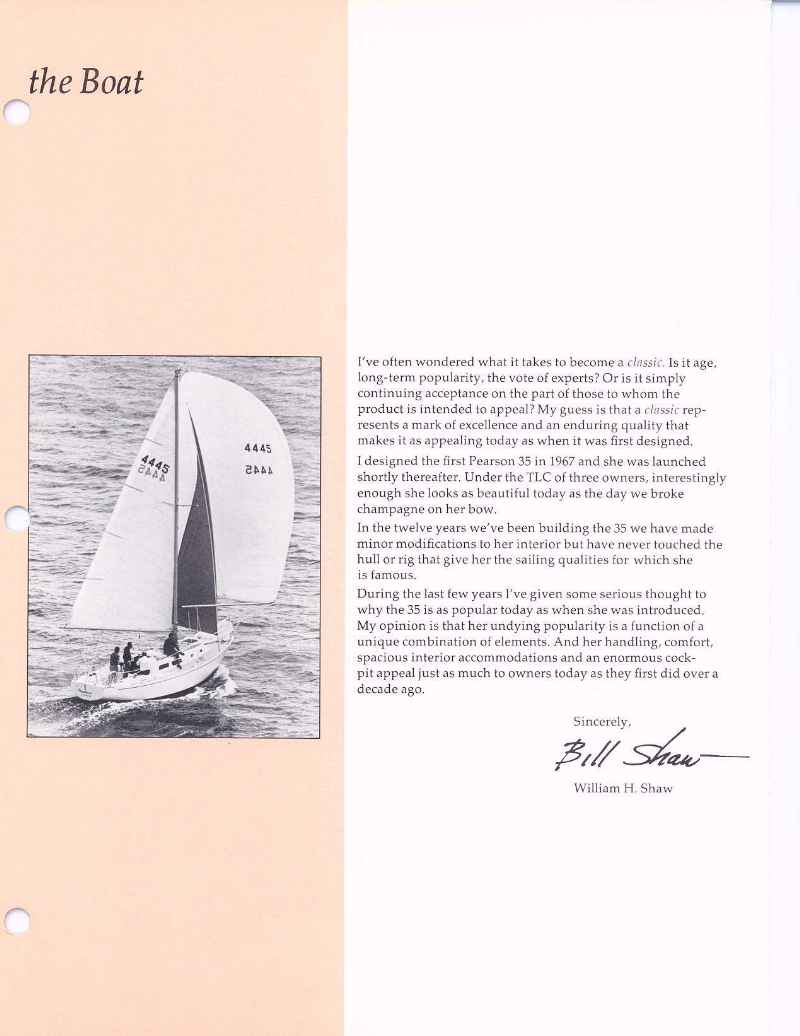 the Boat
4445
4445
4445
4445
I've often wondered what it takes to become a classic. Is it age,
long-term popularity, the vote of experts? Or is it simply
continuing acceptance on the part of those to whom the
product is intended to appeal? My guess is that a classic rep-
resents a mark of excellence and an enduring quality that
makes it as appealing today as when it was first designed.
I designed the first Pearson 35 in 1967 and she was launched
shortly thereafter. Under the TLC of three owners, interestingly
enough she looks as beautiful today as the day we broke
champagne on her bow.
In the twelve years we've been building the 35 we have made
minor modifications to her interior but have never touched the
hull or rig that give her the sailing qualities for which she
is famous.
During the last few years I've given some serious thought to
why the 35 is as popular today as when she was introduced.
My opinion is that her undying popularity is a function of a
unique combination of elements. And her handling, comfort,
spacious interior accommodations and an enormous cock-
pit appeal just as much to owners today as they first did over a
decade ago.
Sincerely,
Bill Shaw
William H. Shaw